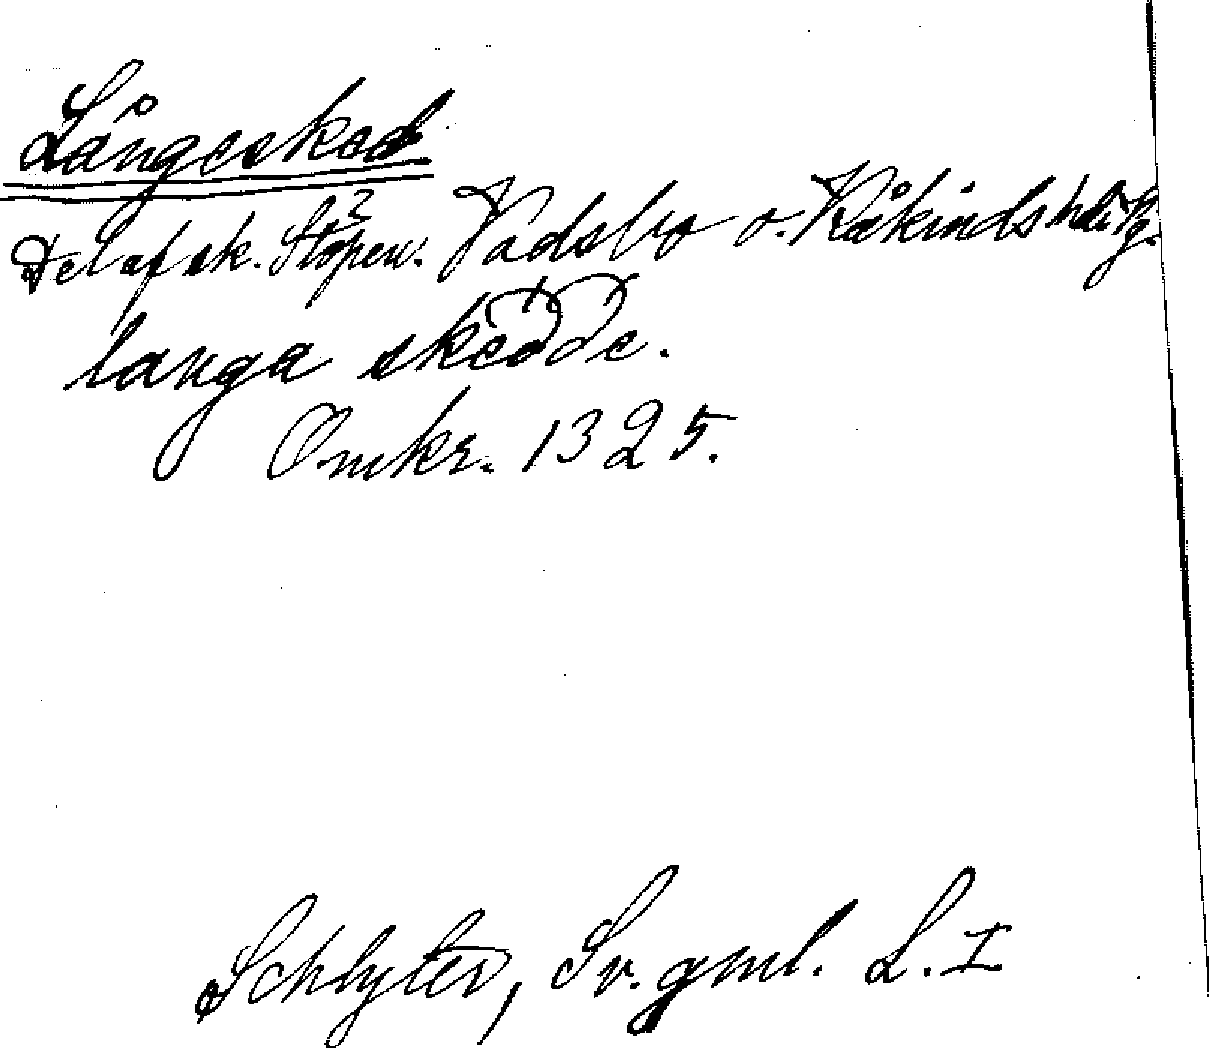 Långesked
Del af sk. Stöpen. Vadsbo o. Kåkinds hdr
langa skedde.
Omkr. 1325.
Schlyter, Sv. gml. L. I